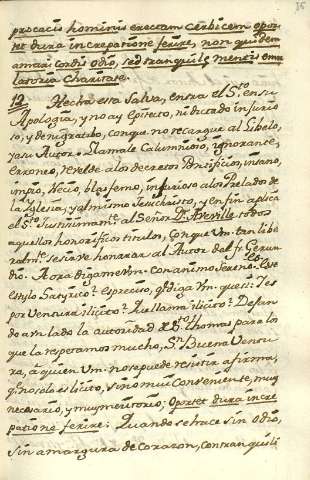 procacis hominis erectam cerbicem opor-
tet dura increpatione ferire, non quidem
amari cordis odio, sed tranquile mentis emu-
latoria charitate.
12 Hecha esta Salva, entra el S.r en su
Apologia, y no ay Epiteto, ni dictado injurio
so, y denigratibo, con que no recargue al Libelo,
y a su Autor. Llamale Calumnioso, ignorante,
erroneo, revelde a los decretos Pontificios, insano,
impio, Necio, blasfemo, injurioso a los Prelados de
la Iglesia, y al mismo Jesuchristo, y en fin aplica
el S.to al Señor D. Areville todos
aquellos honorificos titulos, con que Vm. tan libe
ralm.te se sirve honrrar al Autor del fr. Gerun-
dio. Aora digame Vm. con animo sereno. Este
estylo Satyrico: es preciso, q.e diga Vm. que si: Y es
por ventura ilicito? Que llama ilicito? Defien
da a un lado la autoridad de S.to thomas para los
que la respetamos mucho, S.n Buena Ventu
ra, a quien Vm. no se puede resistir afirma,
q.e no solo es licito, sino mui Conveniente, muy
necesario, y muy meritorio; Oportet dura incre
patione ferire: Quando se hace sin odio,
sin amargura de Corazon, con tranquili